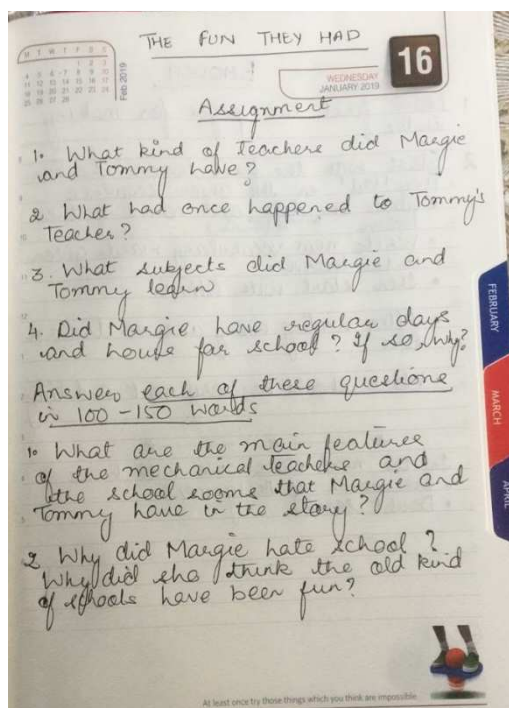 THE FUN THEY HAD
16
WEDNESDAY
JANUARY 2019
Feb 2019
M T W T F S S
1 2 3
4 5 6 7 8 9 10
11 12 13 14 15 16 17
18 19 20 21 22 23 24
25 26 27 28
Assignment
1. What kind of Teachers did Margie
and Tommy have?
2 What had once happened to Tommy's
Teacher?
3. What subjects did Margie and
Tommy learn
4. Did Margie have regular days
and hours for school? If so, why?
Answer each of these questions
in 100-150 words
1. What are the main features
of the mechanical teachers and
the school rooms that Margie and
Tommy have in the story?
2 Why did Margie hate school?
Why did she think the old kind
of schools have been fun?
FEBRUARY
MARCH
APRIL
At least once try those things which you think are impossible